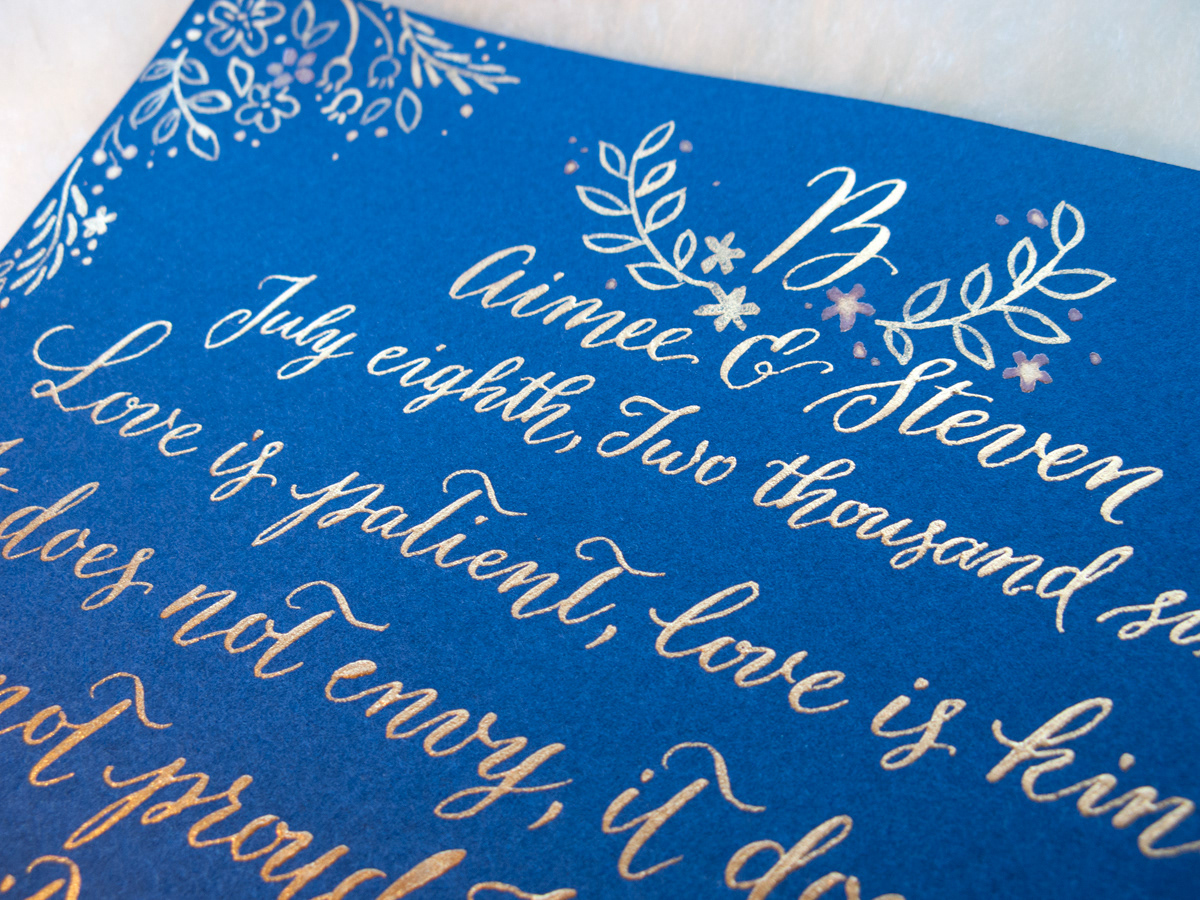 B
Aimee & Steven
July eighth, Two thousand
Love is patient, love is kin
does not envy, it do
not proud